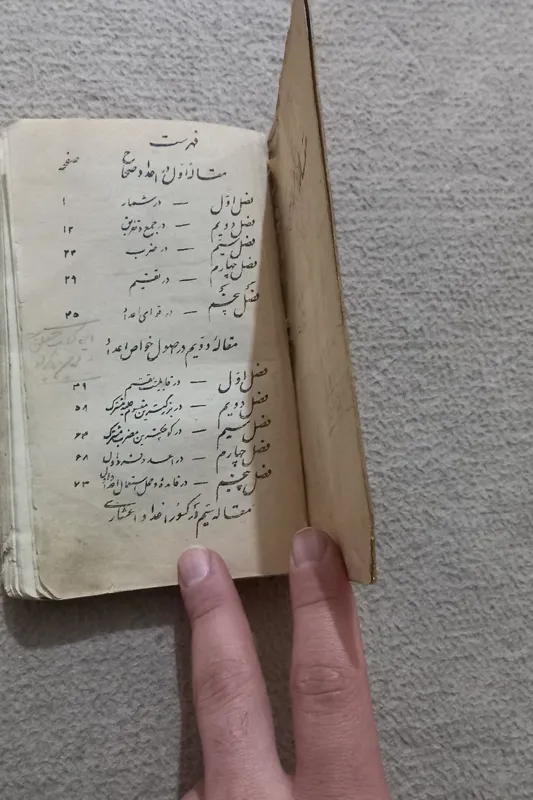 فهرست
صفحه
مقالهٔ اوّل در اعداد صحاح
فصل اوّل — در شمار ۱
فصل دویم — در جمع و تفریق ۱۲
فصل سیّم — در ضرب ۲۴
فصل چهارم — در تقسیم ۲۹
فصل پنجم — در قوای اعداد ۴۵
مقالهٔ دویم در اصول خواص اعداد
فصل اوّل — در قابلیّت تقسیم ۴۹
فصل دویم — در بزرگترین مقسوم علیه مشترک ۵۸
فصل سیّم — در کوچکترین مضرب مشترک ۶۴
فصل چهارم — در اعداد اوّل ۶۸
فصل پنجم — در فائده و محل استعمال اعداد اوّل ۷۳
مقاله سیّم در کسور اعداد اعشاری